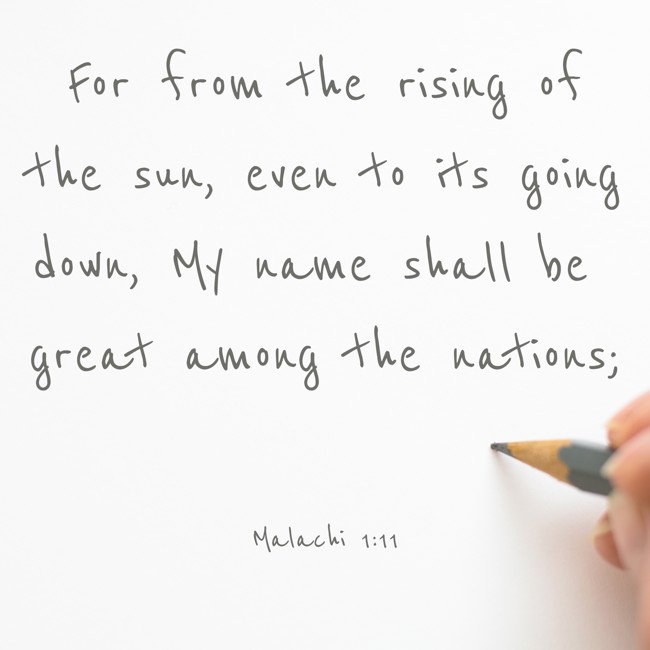 For from the rising of
the sun, even to its going
down, My name shall be
great among the nations;
Malachi 1:11